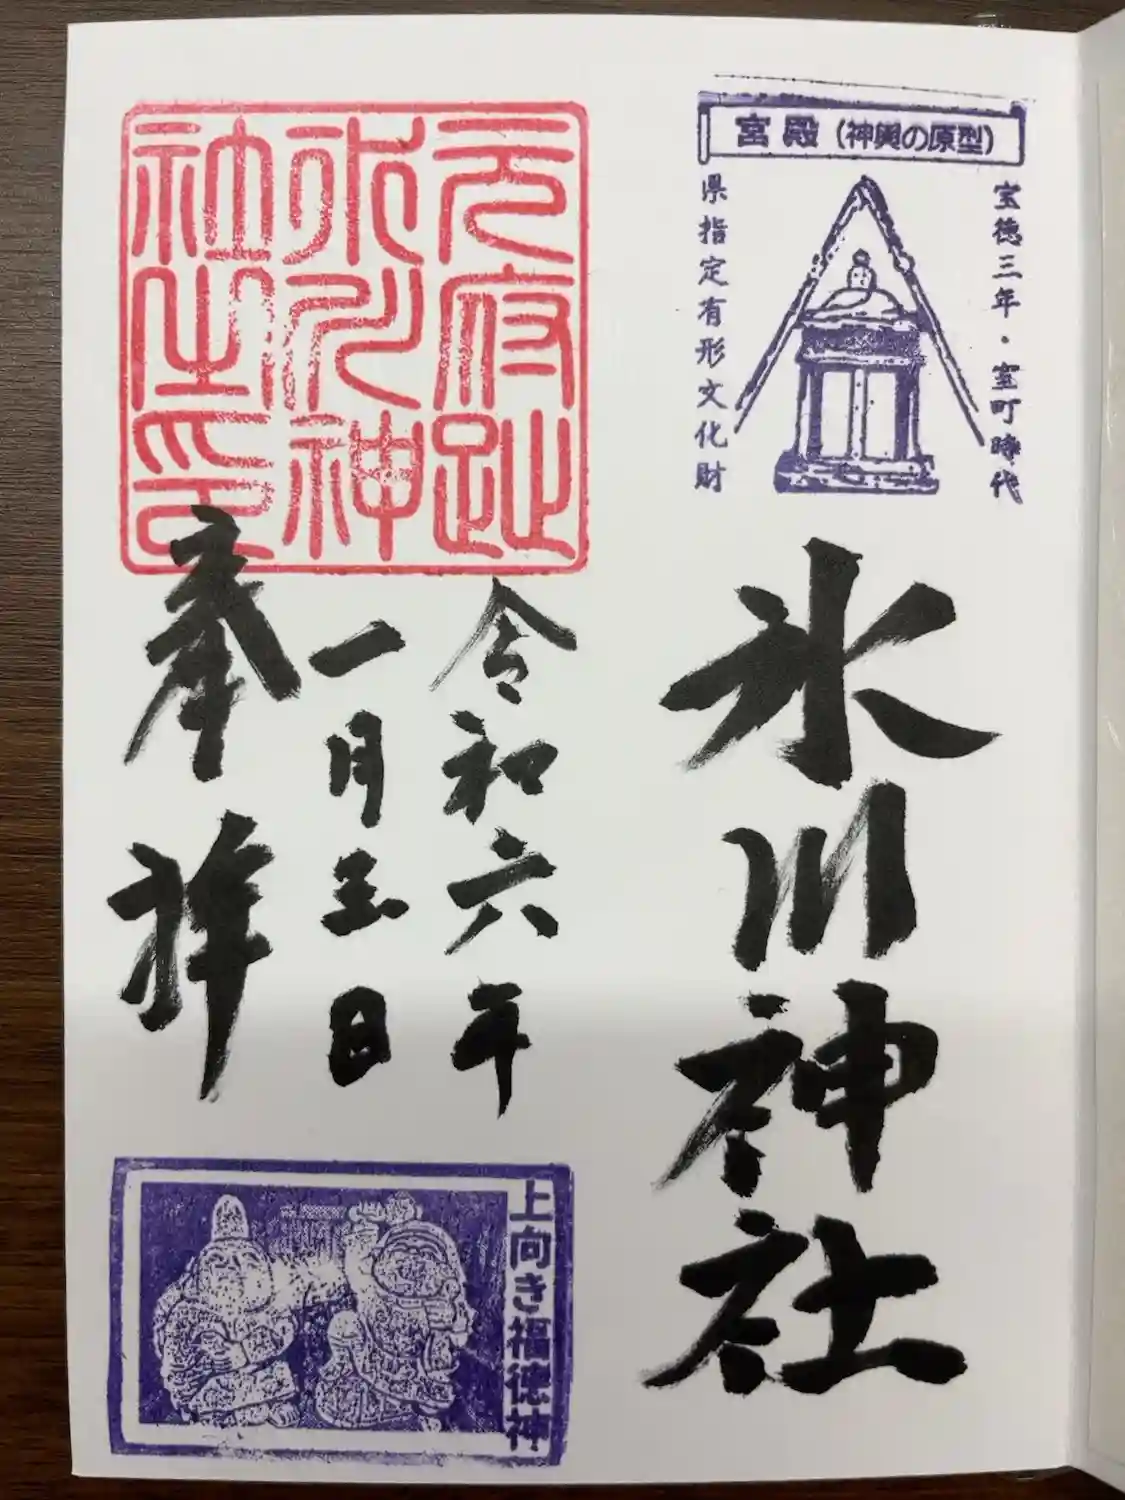 宮殿（神輿の原型）
宝徳三年・室町時代
県指定有形文化財
氷川神社
元府趾
氷川神
社之印
令和六年
一月五日
奉拝
上向き福徳神